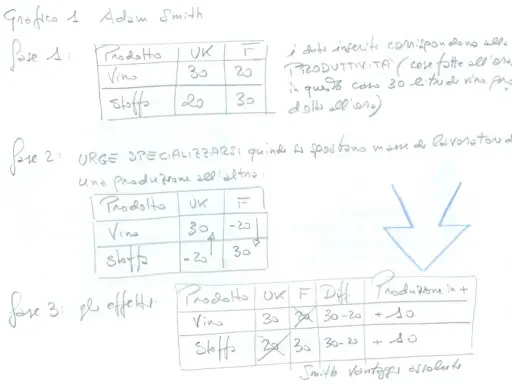 Grafico 1 Adam Smith
fase 1:
Prodotto UK F
Vino 30 20
Stoffa 20 30
i dati inseriti corrispondono alla
PRODUTTIVITA' (cose fatte all'ora
in questo caso 30 litri di vino pro
dotte all'ora)
fase 2: URGE SPECIALIZZARSI quindi si spostano masse di lavoratori d
una produzione all'altra:
Prodotto UK F
Vino 30 -20
Stoffa -20 30
fase 3: gli effetti:
Prodotto UK F Diff Produzione in +
Vino 30 20 30-20 +10
Stoffa 20 30 30-20 +10
Smith vantaggi assoluti